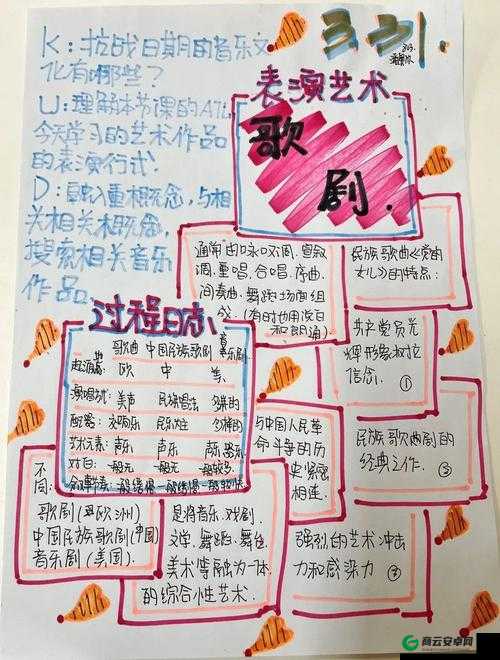 K：抗战日期的音乐文
化有哪些？
U：理解本节课的ATL，
今天学习的艺术作品
的表演行式．
D：融入重相概念，与相
关相关木概念，
搜索相关音乐
作品
3.31.
表演艺术
歌
剧．
通常由咏叹调、宣叙
调、重唱、合唱、序曲、
间奏曲、舞蹈场面组
成（有时也用说白
和朗诵）
民族歌曲《党的
女儿》的特点：
共产党员光
辉形象
信念．①
过程日志
歌曲 中国民族歌剧 音乐剧
起源 欧 中 美
演唱式：美声 民族唱法 多样的
配器：交响乐 民乐 多样的
艺术元素：声乐 声乐
对白：一般无 一般无 一般较多．
与中国人民革
命斗争的历
史紧密
相连．
民族歌曲剧的
经典之作．③
不
同：
歌剧（欧洲）
中国民族歌剧（中国）
音乐剧（美国）
是将音乐、戏剧、
文学、舞蹈、舞台
美术等融为一体
的综合性艺术．
强烈的艺术冲击
力和感染力
商云安卓网